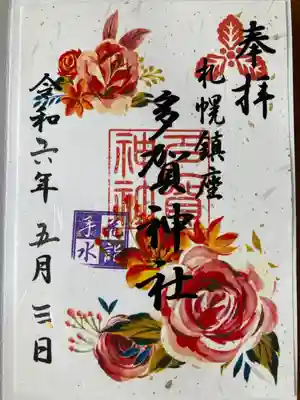 奉拝
札幌鎮座
多賀神社
多賀
神社
花詣
手水
令和六年 五月三日